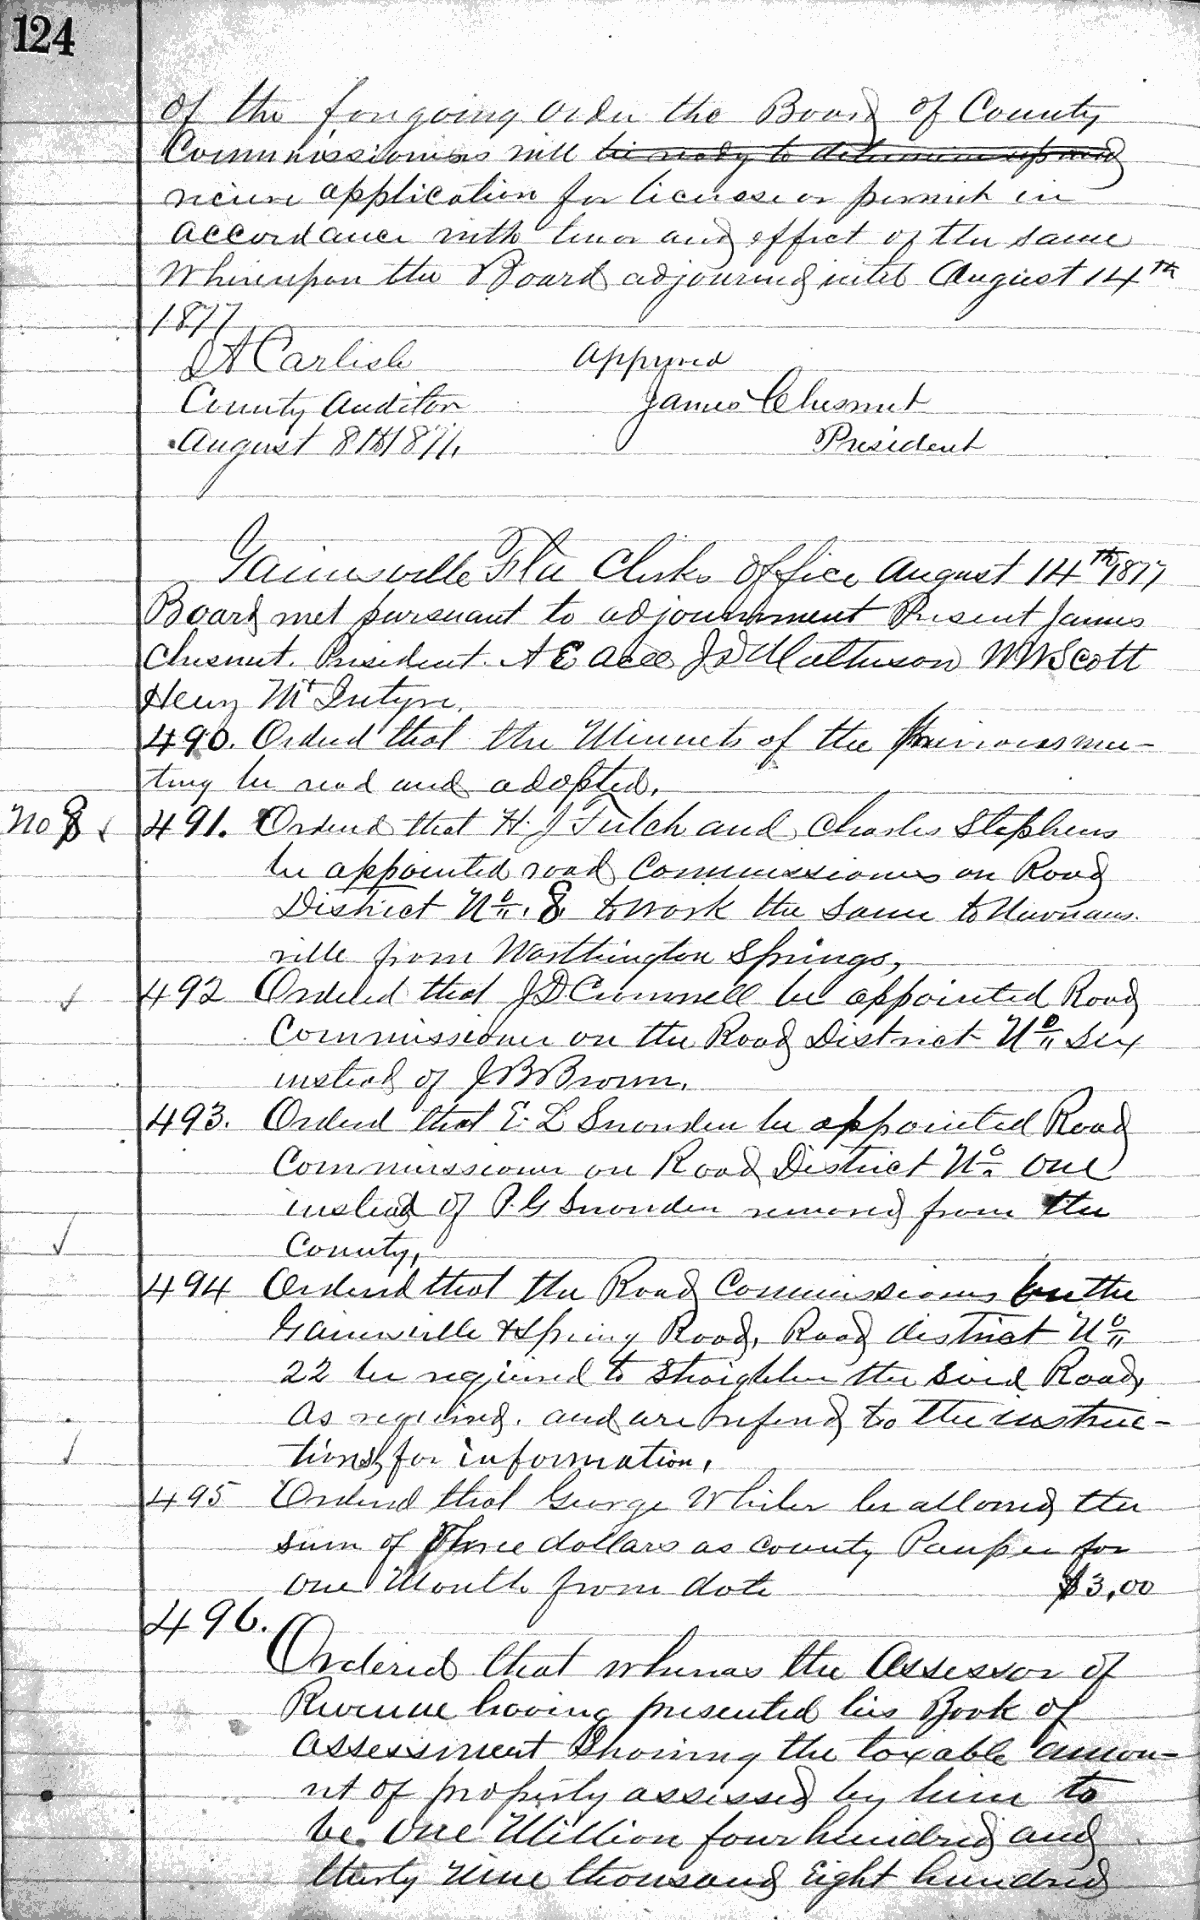 124
of the foregoing order the Board of County
Commissioners will be ready to determine upon and
recieve application for license or permit in
accordance with tenor and effect of the same
Whereupon the Board adjourned until August 14th
1877
Approved
County Auditor
James Chesnut
August 8th 1877,
President
Gainesville Fla Clerks office August 14th 1877
Board met pursuant to adjournment Present James
Chesnut. President. A E J D Mathuson W W Scott
Henry McIntyre.
490. Orderd that the Minuets of the Previous mee-
ting be read and adopted.
No 8 491. Orderd that H. J Futch and Charles Stephens
be appointed road Commissioners on Road
District No. 8. to work the same to Newnans-
ville from Worthington Springs,
492 Ordered that J D Cromwell be appointed Road
Commissioner on the Road District No six
instead of J B Brown.
493. Orderd that E. L Snowden be appointed Road
Commissioner on Road District No One
instead of P. G Snowden removed from the
County,
494 Orderd that the Road Commissioners on the
Gainesville & Spring Road, Road district No
22 be required to straighten the said Road,
as required. and are refered to the instruc-
tions for information.
495 Orderd that George Whiler be allowed the
sum of Three dollars as county Pauper for
one Month from date $3.00
496.
Ordered that whereas the Assessor of
Revenue having presented his Book of
assessment Showing the taxable amou-
nt of property assessed by him to
be. One Million four hundred and
thirty Nine thousand Eight hundred